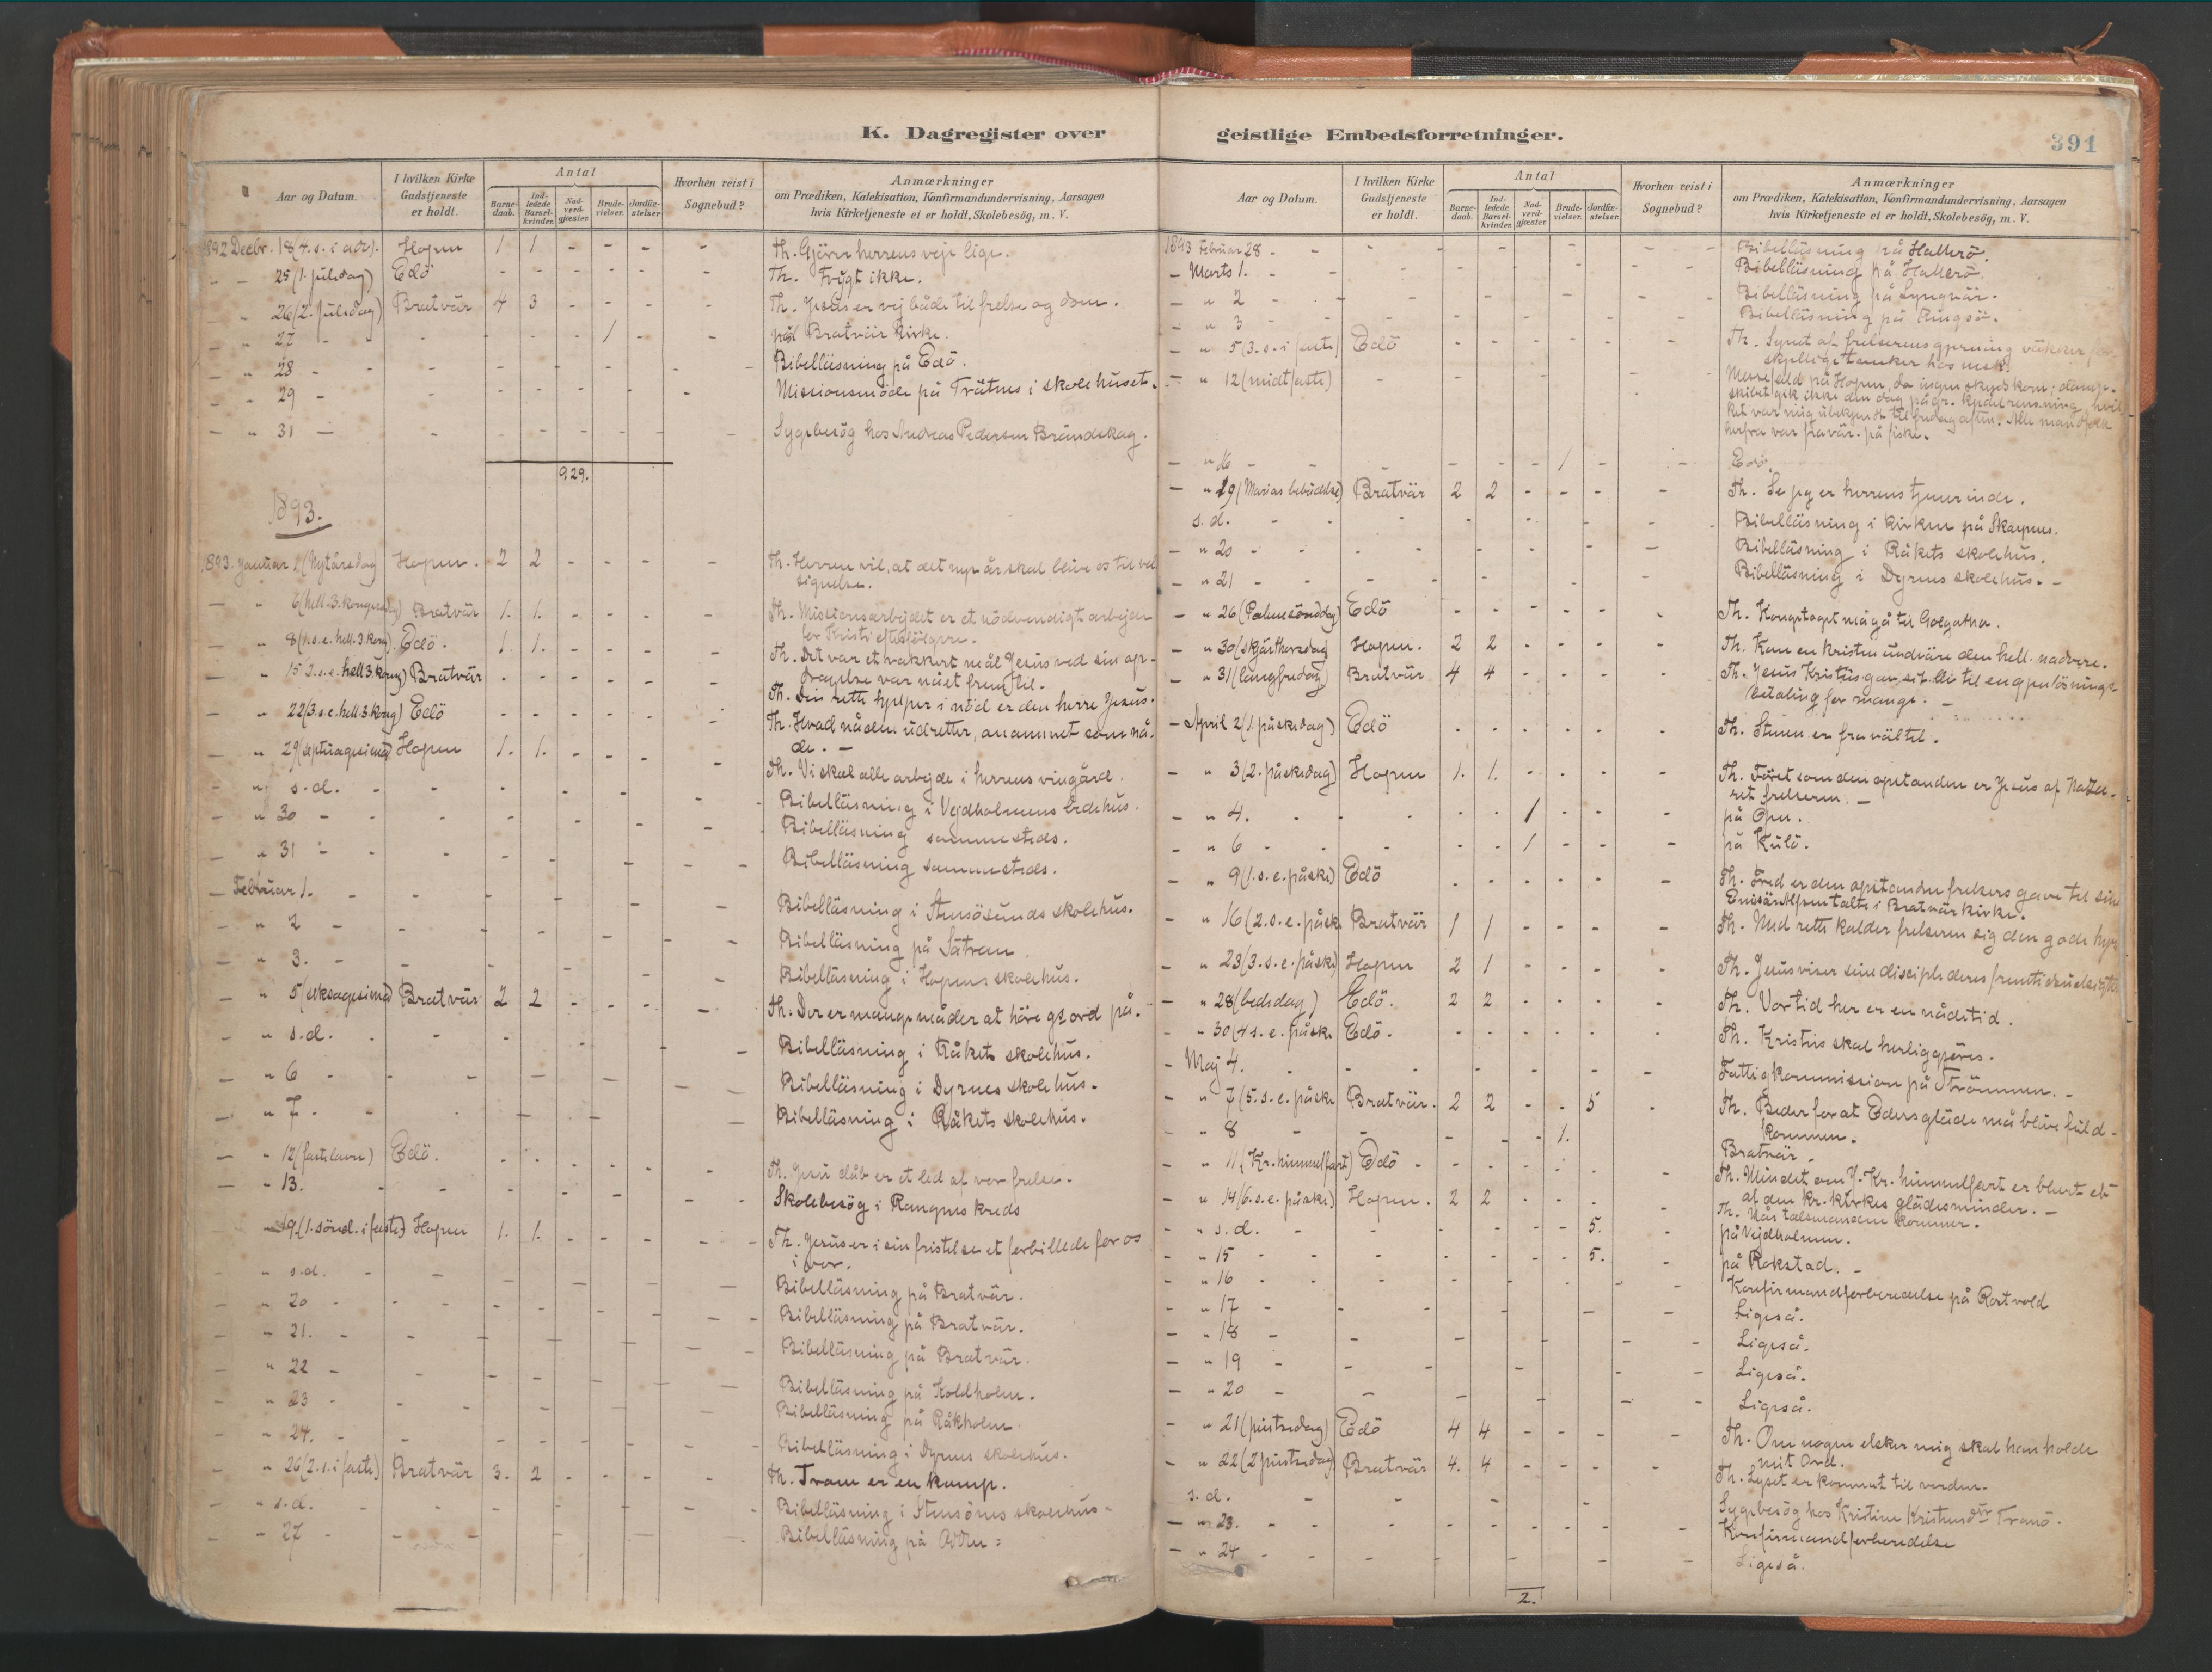 K. Dagregister over geistlige Embedsforretninger.
391
Aar og Datum. | I hvilken Kirke Gudstjeneste er holdt. | Antal | Barne-daab. | Ind-ledede Barsel-kvinder. | Nad-verd-gjæster. | Brude-vielser. | Jordfæ-stelser. | Hvorhen reist i Sognebud? | Anmærkninger om Prædiken, Katekisation, Konfirmandundervisning, Aarsagen hvis Kirketjeneste ei er holdt, Skolebesøg, m. V.
1892 Decbr. 18 (4. s. i adv). Hopen 1 1 - - - - Th. Gjörer herrens veje lige.
- - 25 (1. juledag) Edö - - - - - - Th. Frygt ikke.
- " 26 (2. juledag) Bratvär 4 3 - - - - Th. Jesus er vej både til frelse og dom.
- " 27 - - - - 1 - - ved Bratvär kirke.
- " 28 - - Bibelläsning på Edö.
- " 29 - Missionsmöde på Trätnes i skolehuset.
- " 31 - Sygebesög hos Andreas Pedersen Brändskag.
929.
1893.
1893. Januar 1 (Nytårsdag) Hopen. 2 2 - - - - Th. Herren vil, at det nye år skal blive os til vel
signelse.
- " 6 (hell. 3. kongers dag) Bratvär 1. 1. - - - - Th. Missionsarbejdet er et nödvendigt arbejde
for Kristi efterfölgere.
- " 8 (1. s. e. hell. 3 kong) Edö. 1. 1. - - - - Th. Det var et vakkert mål Jesus ved sin op-
dragelse var nået frem til.
- " 15 2. s. e. hell 3. kong) Bratvär - - - - - - Th. Den rette hjelper i nöd er den herre Jesus.
- " 22 (3. s. e. hell. 3 kong) Edö - - - - - - Th. Hvad nåden udretter, anammet som nå-
de. -
- " 29 (septuagesima) Hopen 1. 1. - - - - Th. Vi skal alle arbejde i herrens vingård.
- " s. d. - - Bibelläsning i Vejdholmens bedehus.
- " 30 - - Bibelläsning sammesteds.
- " 31 - - Bibelläsning sammesteds.
- Februar 1. - - Bibelläsning i Stensösunds skolehus.
- " 2 - - Bibelläsning på Sätran.
- " 3. - - Bibelläsning i Hopens skolehus.
- " 5 (seksagesima) Bratvär 2 2 - - - - Th. Der er mange måder at höre gs ord på.
- " s. d. - - Bibelläsning i Råkets skolehus.
- " 6 - - Bibelläsning i Dyrnes skolehus.
- " 7 - - Bibelläsning i Råkets skolehus.
- " 12 (fastelavn) Edö. - - - - - - Th. Jesu dåb er et led af vor frelse.
- " 13. - - Skolebesög i Rangnes kreds
- " 19 (1. sönd. i faste) Hopen 1. 1. - - - - Th. Jesus er i sin fristelse et forbillede for os
i vor.
- " s. d. - - Bibelläsning på Bratvär.
- " 20 - - Bibelläsning på Bratvär.
- " 21. - - Bibelläsning på Bratvär.
- " 22 - - Bibelläsning på Koldholm.
- " 23 - - Bibelläsning på Råkholm.
- " 24. - - Bibelläsning i Dyrnes skolehus.
- " 26 (2. s. i faste) Bratvär 3. 2 - - - - Th. Troen er en kamp.
- " s. d. - - Bibelläsning i Stensönes skolehus
- " 27 - - Bibelläsning på
Aar og Datum. | I hvilken Kirke Gudstjeneste er holdt. | Antal | Barne-daab. | Ind-ledede Barsel-kvinder. | Nad-verd-gjæster. | Brude-vielser. | Jordfæ-stelser. | Hvorhen reist i Sognebud? | Anmærkninger om Prædiken, Katekisation, Konfirmandundervisning, Aarsagen hvis Kirketjeneste ei er holdt, Skolebesøg, m. V.
1893 Februar 28 - - Bibelläsning på Hallerö.
- Marts 1. - - Bibelläsning på Hallerö.
- " 2 - - Bibelläsning på Lyngvär.
- " 3 - - Bibelläsning på Ringsö.
- " 5 (3. s. i faste) Edö - - - - - - Th. Synet af frelserens gjerning väkker for
skjellige tanker hos mesk.
- " 12 (midtfaste) - - Messefald på Hopen, da ingen skyds kom; damp-
skibet gik ikke den dag på gr. kjedelrensning, hvil-
ket var mig ubekjendt til fredag aften. Alle mandfolk
herfra var fravär. på fiske.
- " 16 - - - - - 1 - - Edö.
- " 19 (Marias bebudelse) Bratvär 2 2 - - - - Th. Se jeg er herrens tjenerinde.
s. d. - - Bibelläsning i kirken på Skarpnes.
- " 20 - - Bibelläsning i Råkets skolehus.
- " 21 - - Bibelläsning i Dyrnes skolehus. -
- " 26 (Palmesöndag) Edö - - - - - - Th. Kongetoget må gå til Golgatha.
- " 30 (skjärthorsdag) Hopen. 2 2 - - - - Th. Kan en kristen undväre den hell. nadvere.
- " 31 (langfredag) Bratvär 4 4 - - - - Th. Jesus Kristus gav sit liv til en gjenlösnings-
betaling for mange. -
- April 2 (1. påskedag) Edö - - - - - - Th. Stenen er fravältet.
- " 3 (2. påskedag) Hopen 1. 1. - - - - Th. Föret som den opstandne er Jesus af Naza-
ret frelseren. -
- " 4. - - - - 1 - - - på Open.
- " 6 - - - - 1 - - - på Kulö.
- " 9 (1. s. e. påske) Edö - - - - - - Th. Fred er den opstandne frelsers gave til sine
Emissär talte i Bratvär kirke.
- " 16 (2. s. e. påske Bratvär 1 1 - - - - Th. Med rette kalder frelseren sig den gode hyr
- " 23 (3. s. e. påske) Hopen 2 1 - - - - Th. Jesus viser sine disciple deres fremtidsudsigter
- " 28 (bededag) Edö. 2 2 - - - - Th. Vor tid her er en nådetid.
- " 30 (4 s. e. påske Edö. - - - - - - Th. Kristus skal herliggjöres.
- Maj 4. - - Fattigkommission på Strömmen. -
- " 7 (5. s. e. påske Bratvär. 2 2 - - 5 - Th. Beder for at Eders gläde må blive fuld-
kommen.
- " 8 - - - - - 1. - - Bratvär.
- " 11 (Kr. himmelfart) Edö - - - - - - Th. Mindet om J. Kr. himmelfart er blevet et
af den kr. kirkes glädesminder. -
- " 14 (6. s. e. påske) Hopen. 2 2 - - - - Th. Når talsmanden kommer.
- " s. d. - - - - - - 5. - på Vejdholmen.
- " 15 - - - - - - 5. - på Rokstad. -
- " 16 - - Konfirmandforberedelse på Rostvold
- " 17 - - Ligeså.
- " 18 - - Ligeså.
- " 19 - - Ligeså.
- " 20 - - Ligeså.
- " 21 (pintsedag) Edö 4 4 - - - - Th. Om nogen elsker mig skal han holde
mit Ord.
- " 22 (2 pintsedag) Bratvär 4. 4 - - - - Th. Lyset er kommet til verden.
s. d. - - Sygebesög hos Kristine Kristensdtr Tranö.
- " 23. - - Konfirmandforberedelse
- " 24 - - Ligeså.
2.